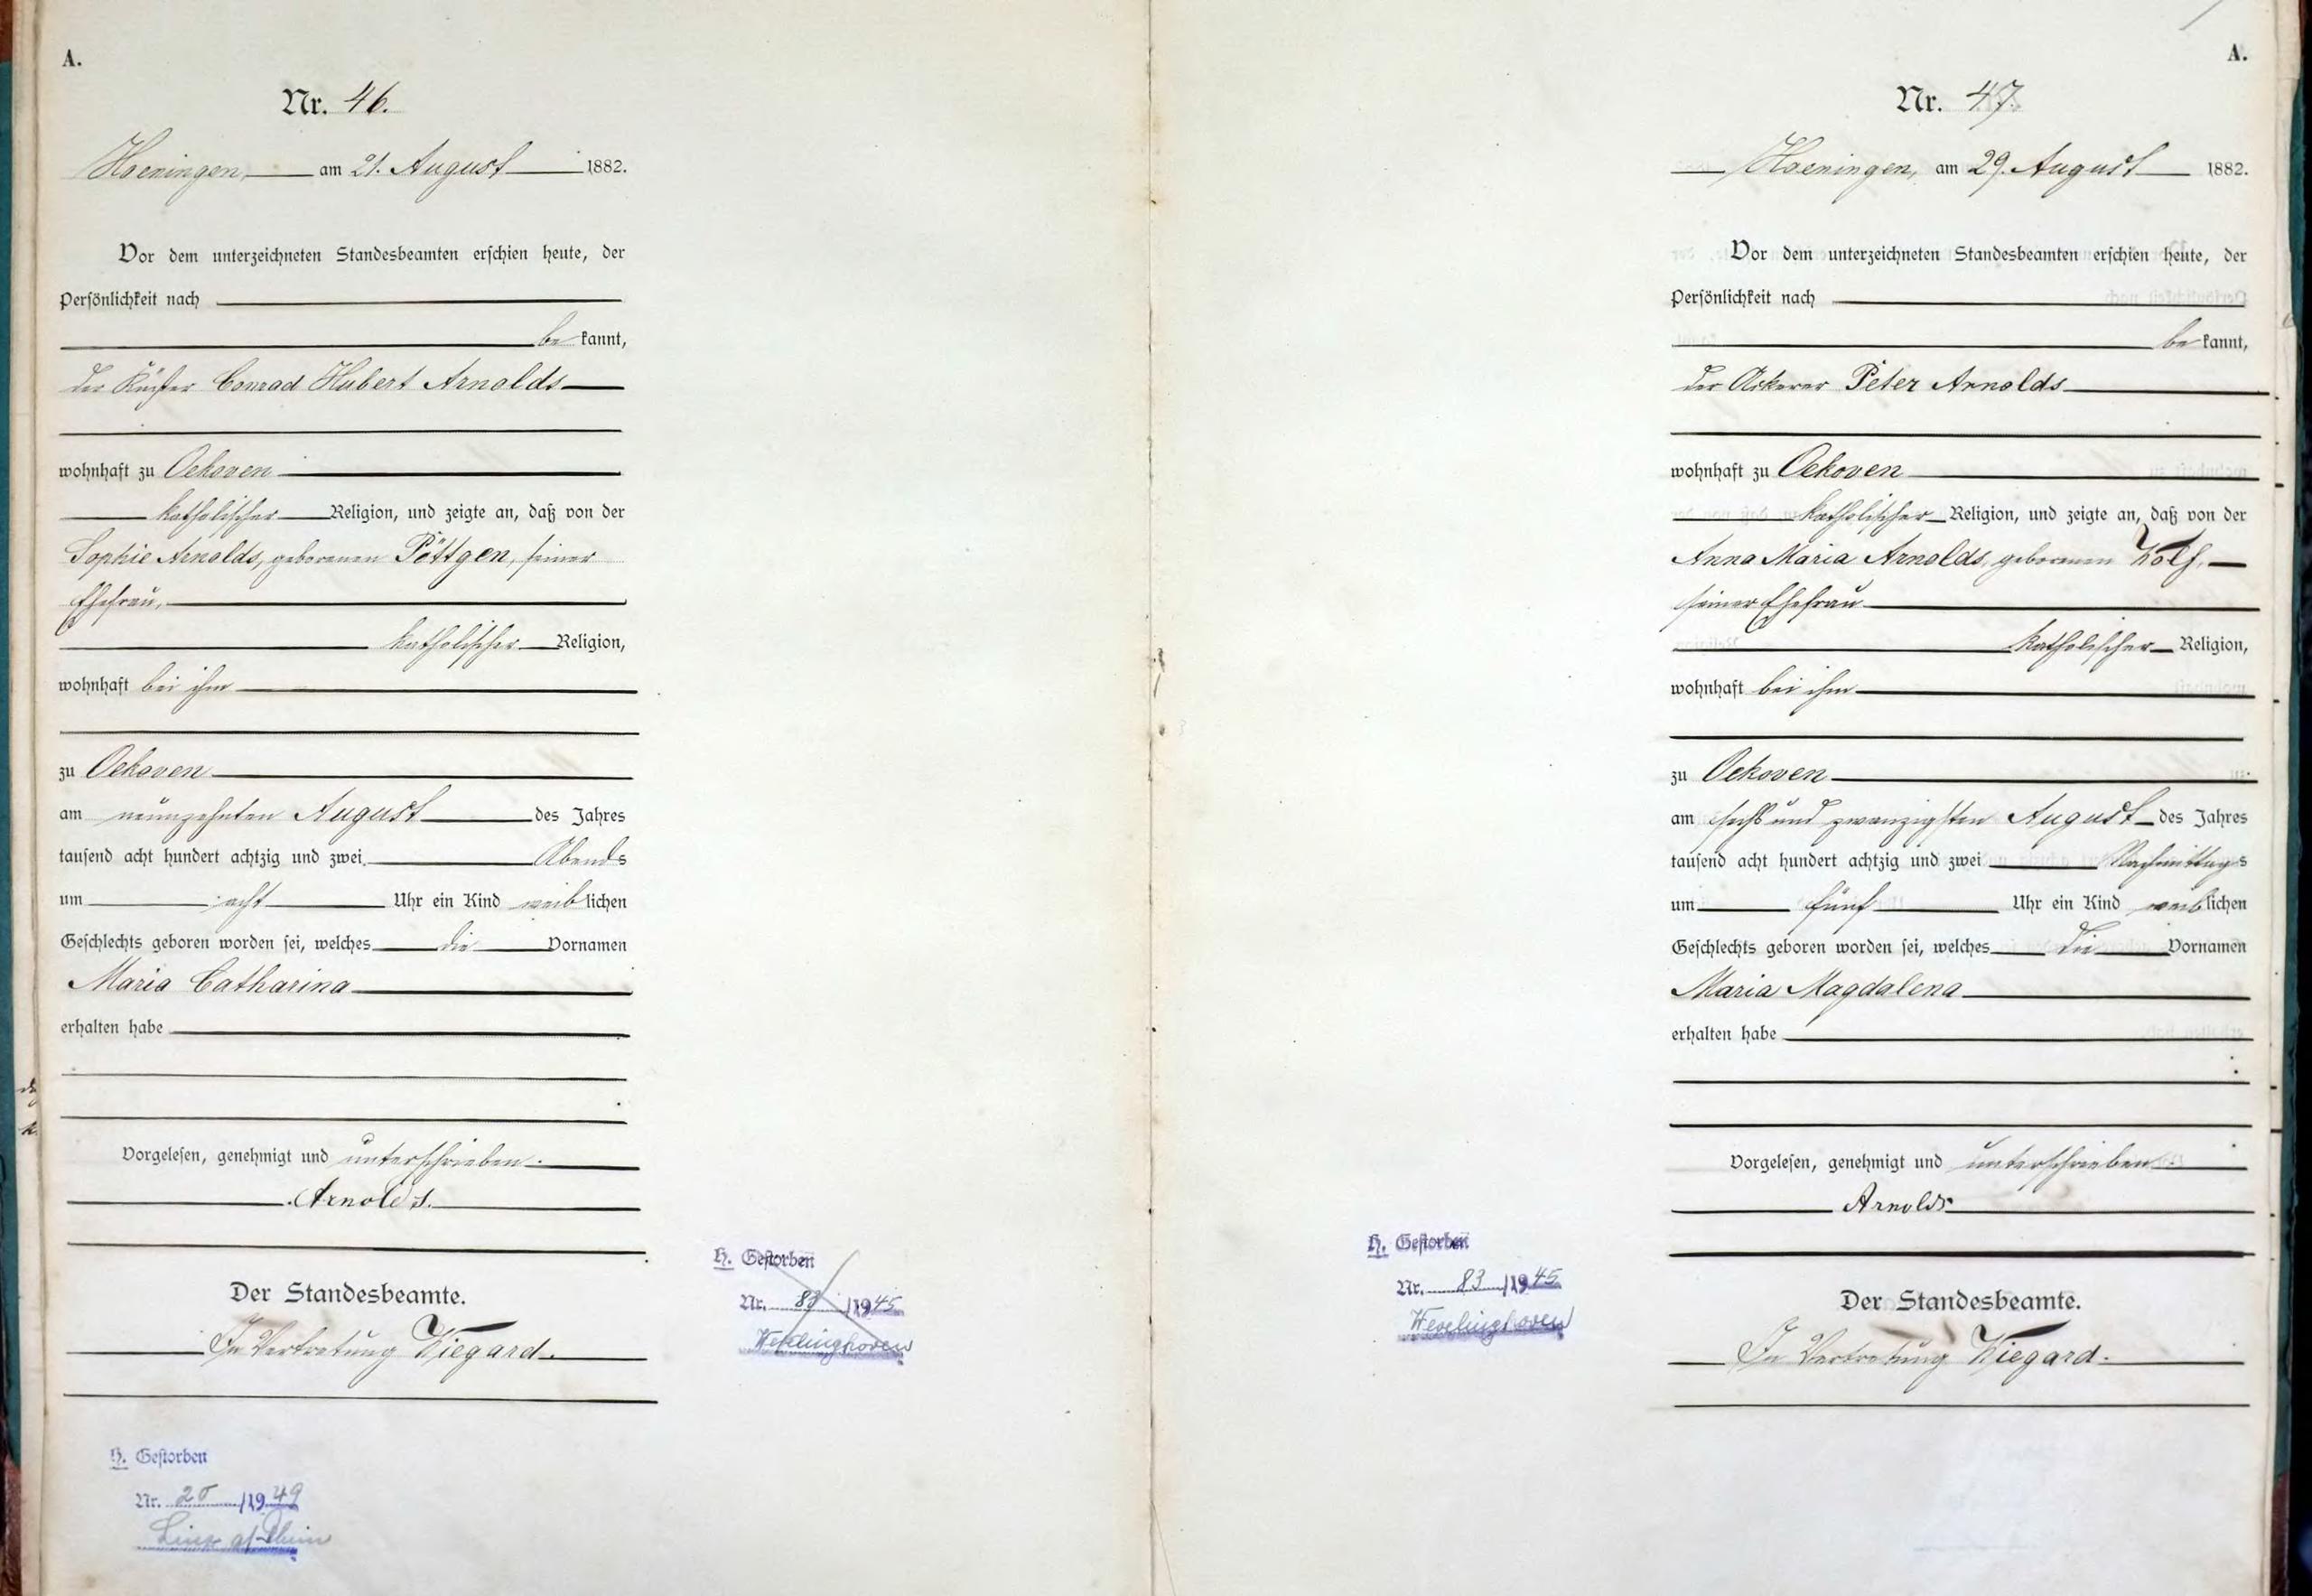 A.
Nr. 46.
Hoeningen, am 21. August 1882.
Vor dem unterzeichneten Standesbeamten erschien heute, der
Persönlichkeit nach
be kannt,
der Küster Conrad Hubert Arnolds
wohnhaft zu Oekoven
katholischer Religion, und zeigte an, daß von der
Sophie Arnolds, geborenen Pöttgen, seiner
Ehefrau,
katholischer Religion,
wohnhaft bei ihm
zu Oekoven
am neunzehnten August des Jahres
tausend acht hundert achtzig und zwei Abends
um acht Uhr ein Kind weiblichen
Geschlechts geboren worden sei, welches die Vornamen
Maria Catharina
erhalten habe
Vorgelesen, genehmigt und unterschrieben.
Arnolds.
Der Standesbeamte.
In Vertretung Wiegard.
H. Gestorben
Nr. 83 /1945
Wevelinghoven
H. Gestorben
Nr. 20 /1949
Linz a/Rhein
A.
Nr. 47.
Hoeningen, am 29. August 1882.
Vor dem unterzeichneten Standesbeamten erschien heute, der
Persönlichkeit nach
be kannt,
der Ackerer Peter Arnolds
wohnhaft zu Oekoven
katholischer Religion, und zeigte an, daß von der
Anna Maria Arnolds, geborenen Wolf,
seiner Ehefrau
katholischer Religion,
wohnhaft bei ihm
zu Oekoven
am sechs und zwanzigsten August des Jahres
tausend acht hundert achtzig und zwei Nachmittags
um fünf Uhr ein Kind weiblichen
Geschlechts geboren worden sei, welches die Vornamen
Maria Magdalena
erhalten habe
Vorgelesen, genehmigt und unterschrieben.
Arnolds
H. Gestorben
Nr. 83 /1945
Wevelinghoven
Der Standesbeamte.
In Vertretung Wiegard.